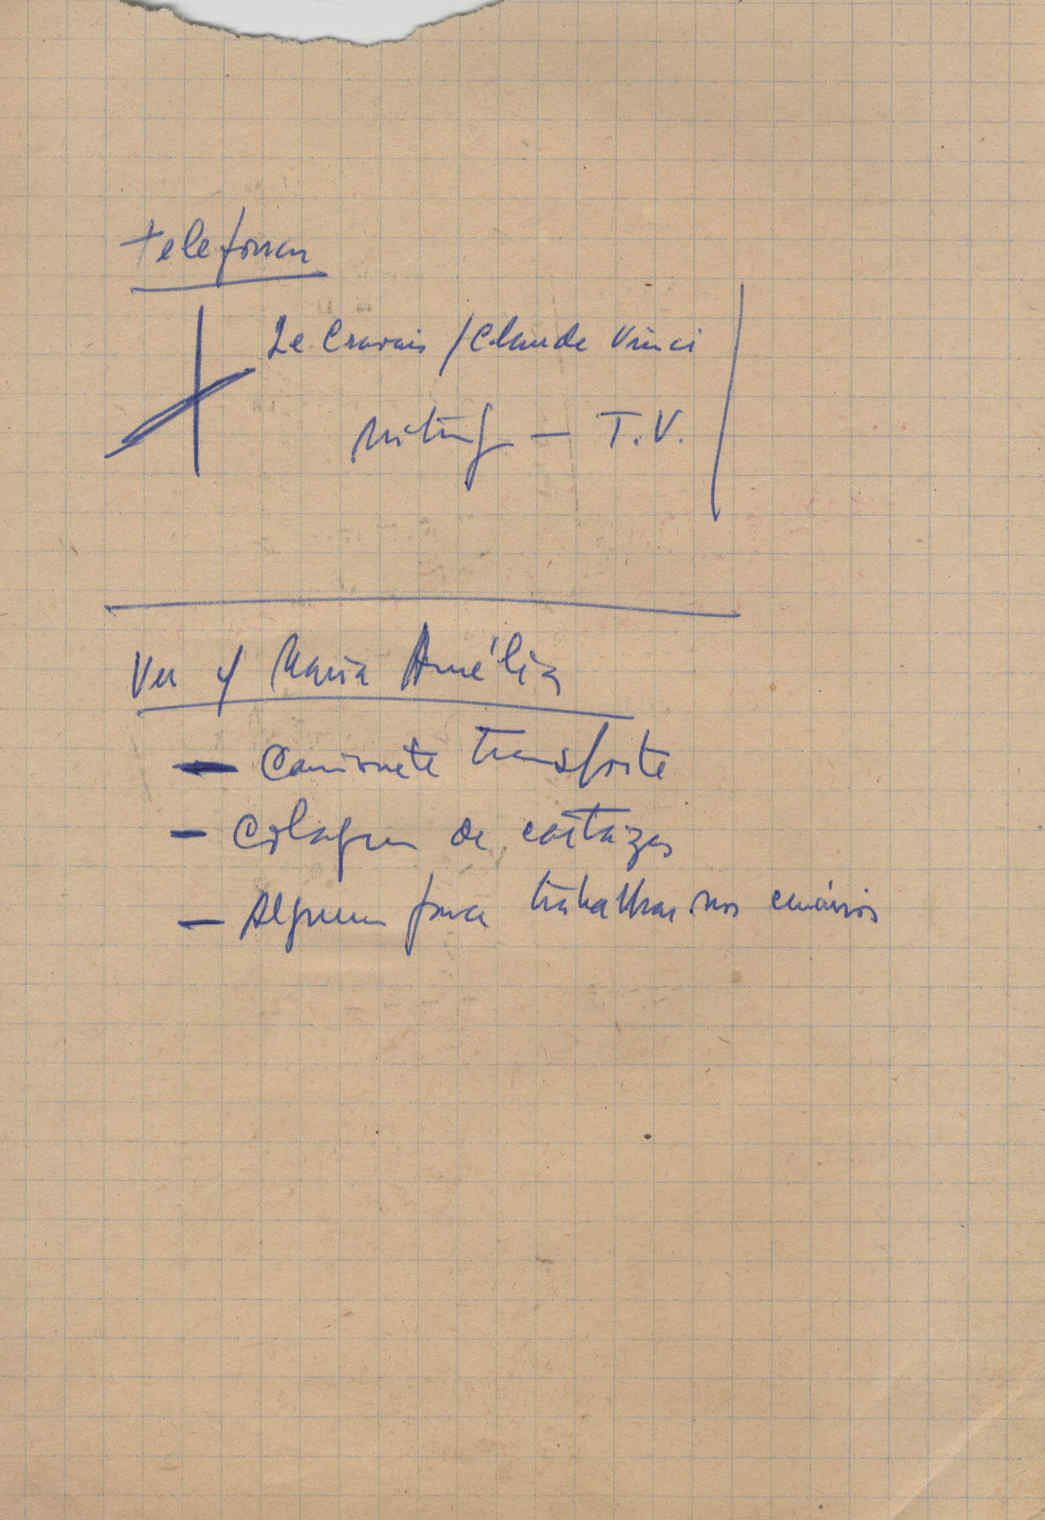 Telefonar
Le Cravais / Claude Vinci
Miting — T.V.
Ver c/ Maria Amélia
— Camionete transporte
— Colagem de cartazes
— Alguem para trabalhar nos cenários